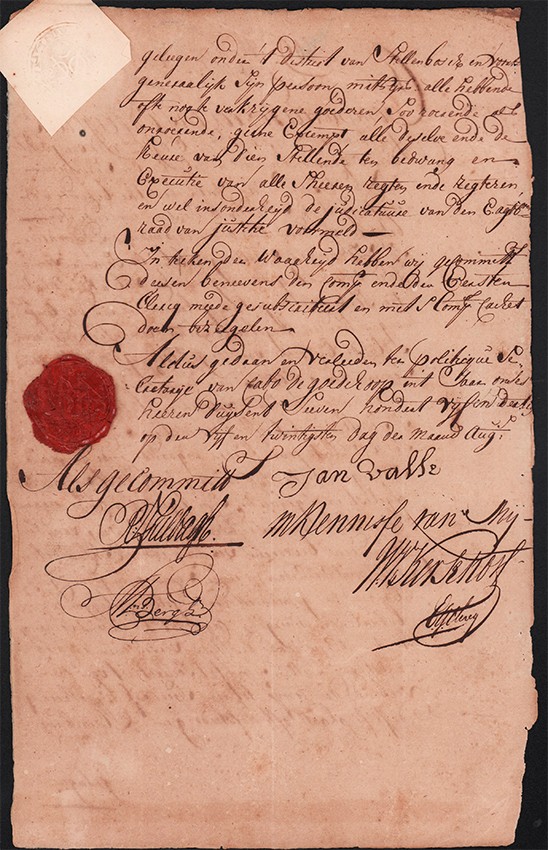 gelegen onder 't district van Stellenbosch en voorts
generaalijk Sijn persoon mitsgrs alle hebbende
ofte nog te verkrijgene goederen Soo roerende als
onroerende, geene Exempt alle deselve ende de
Keuse van dien Stellende ten bedwang en
Executie van alle s'heeren regten ende regteren,
en wel insonderheijd de judicature van den E agtb:
raad van justitie voormeld
In teken der Waarheijd hebben wij gecommitt:
deesen benevens den Comp:t ende den Eersten
Clercq mede gesubscribeert en met 's Comp:s Cachet
doen bezegelen
Aldus gedaan en verleeden ten politicque Se-
cretarije van Cabo de goede hoop int Jaar onses
heeren Duijsent Seeven hondert vijf en dertig
op den vijf en twintigsten Dag der maand Aug:
Als gecommitt:s
Jan Valk
mij Kennisse van mij
Clercq